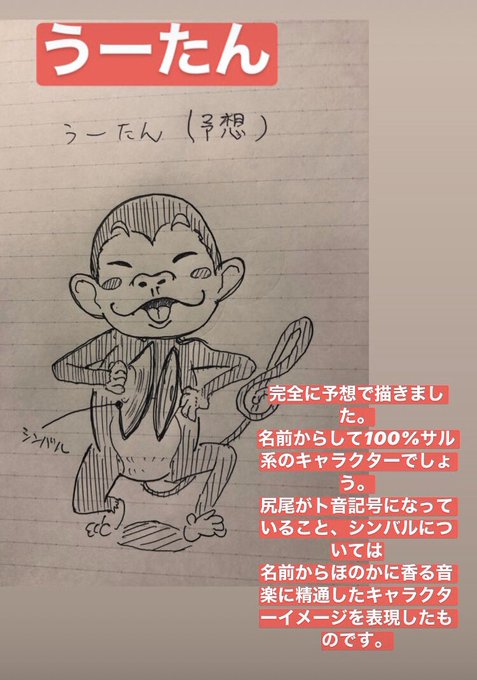 うーたん
うーたん（予想）
シンバル
完全に予想で描きまし
た。
名前からして100%サル
系のキャラクターでしょ
う。
尻尾がト音記号になって
いること、シンバルにつ
いては
名前からほのかに香る音
楽に精通したキャラクタ
ーイメージを表現したも
のです。